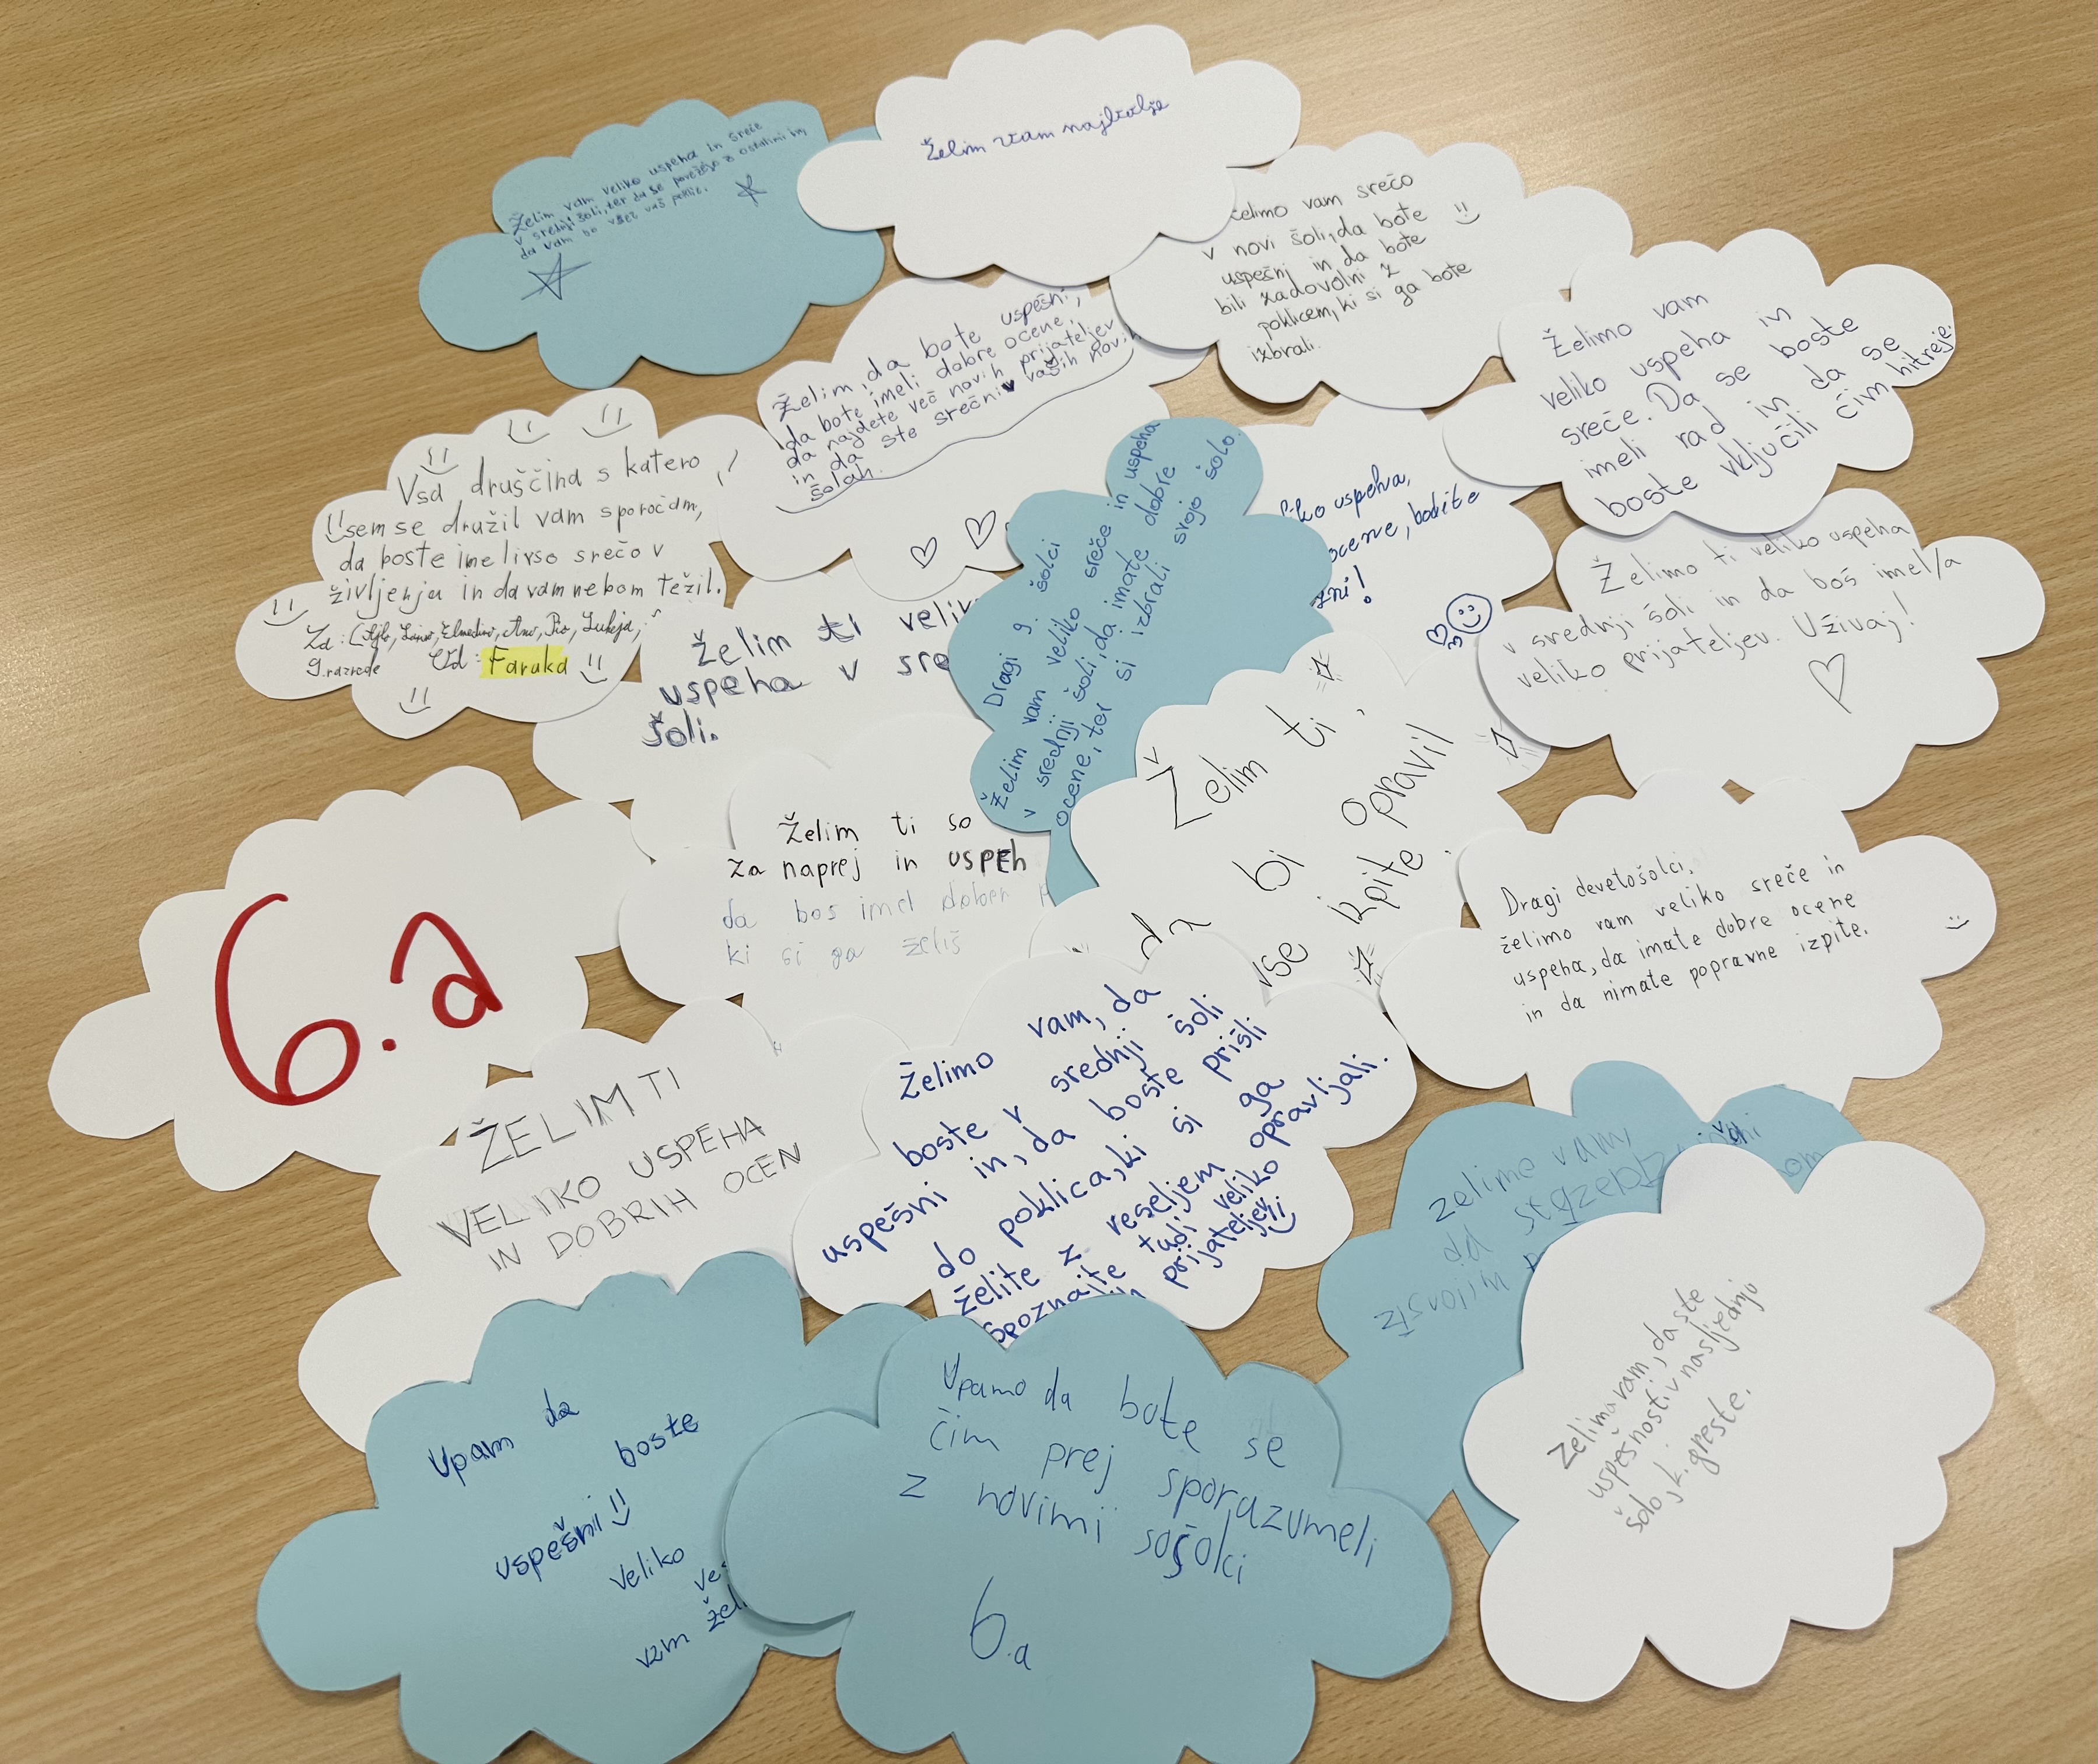 Želim vam veliko uspeha in sreče
v srednji šoli, ter da se povežejo z ostalimi in
da vam bo všeč vaš poklic.
Želim vam najboljše
želimo vam srečo
v novi šoli, da bote
uspešni in da bote
bili zadovolni z
poklicem, ki si ga bote
izbrali.
Želimo vam
veliko uspeha in
sreče. Da se boste
imeli rad in da se
boste vključili čim hitreje.
Želim, da bote uspešni,
da bote imeli dobre ocene,
da najdete več novih prijateljev
in da ste srečni v vaših novih
šolah.
Vsa druščina s katero
sem se družil vam sporočam,
da boste imeli vso srečo v
življenju in da vam nebom težil.
Za:
9. razreda Od: Faruka
Želim ti veli
uspeha v sre
šoli.
Dragi 9. šolci
Želim vam veliko sreče in uspeha
v srednji šoli, da imate dobre
ocene, ter si izbrali svojo šolo.
uspeha,
ocene, bodite
!
Želimo ti veliko uspeha
v srednji šoli in da boš imel/a
veliko prijateljev. Uživaj!
Želim ti,
da bi opravil
vse izpite
Želim ti so
za naprej in uspeh
da bos imel dober p
ki si ga želiš
Dragi devetošolci,
želimo vam veliko sreče in
uspeha, da imate dobre ocene
in da nimate popravne izpite.
6.a
ŽELIM TI
VELIKO USPEHA
IN DOBRIH OCEN
Želimo vam, da
boste v srednji šoli
uspešni in, da boste prišli
do poklica, ki si ga
želite z veseljem opravljali.
spoznajte tudi veliko
prijateljev
želimo vam,
da
Želimo vam, da ste
uspešnosti v nasljednjo
šolo, k. greste.
Upam da
boste
uspešni
Veliko
ve
vam žel
Upamo da bote se
čim prej sporazumeli
z novimi sošolci
6.a